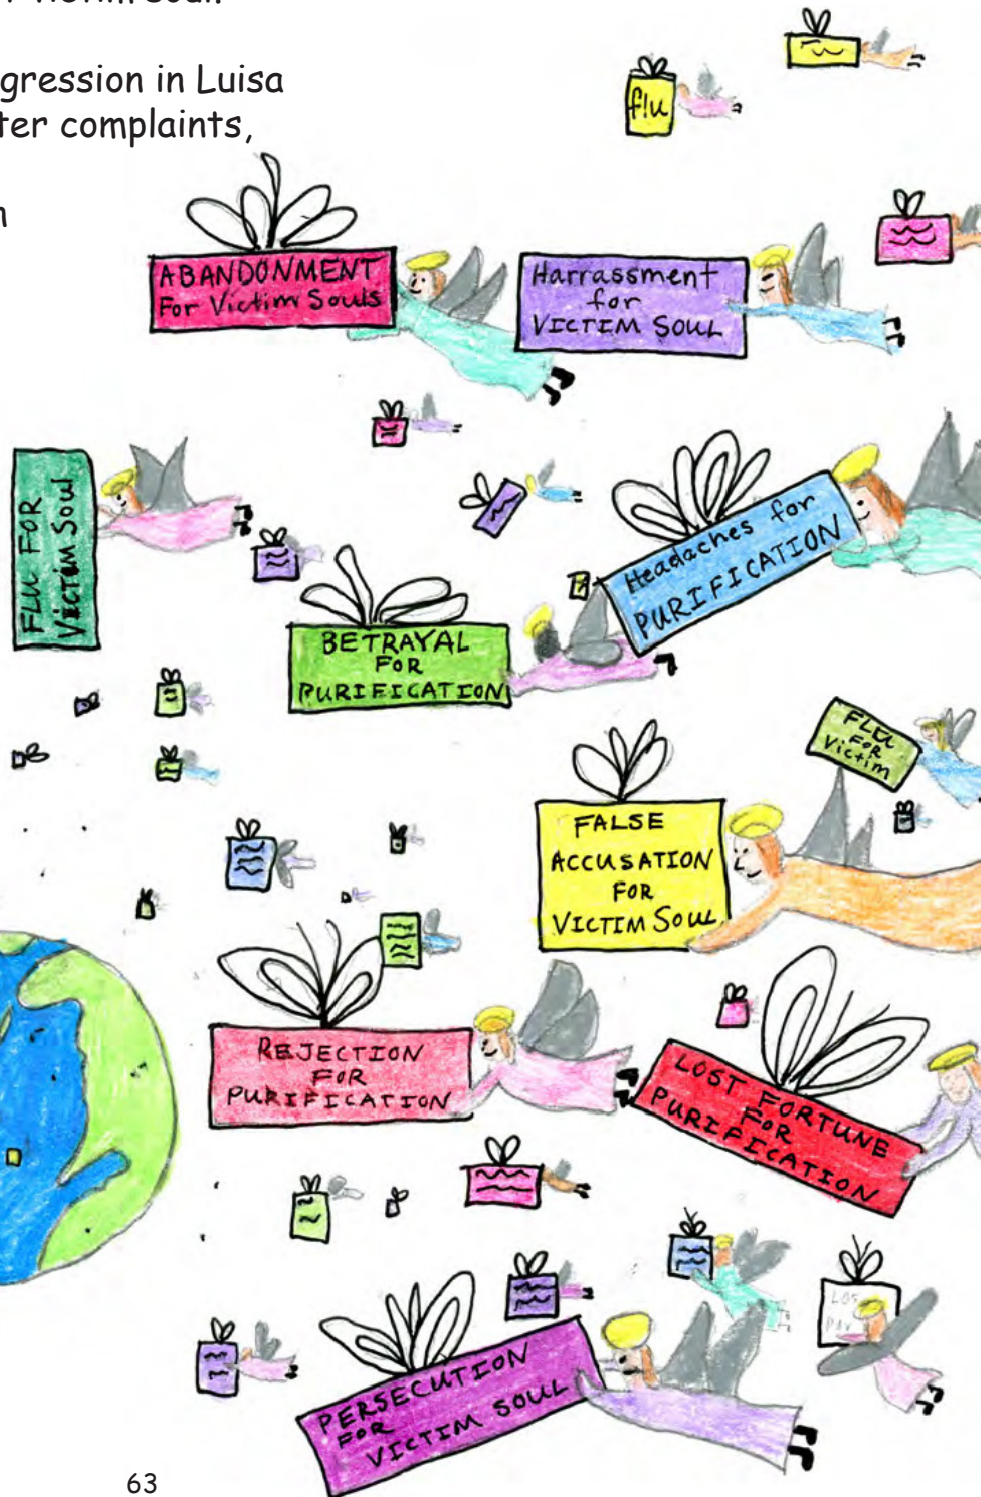 r victim soul.
gression in Luisa
ter complaints,
flu
ABANDONMENT
For Victim Souls
Harrassment
for
VICTIM SOUL
FLU FOR
VICTIM Soul
Headaches for
PURIFICATION
BETRAYAL
FOR
PURIFICATION
FLU
FOR
Victim
FALSE
ACCUSATION
FOR
VICTIM SOUL
REJECTION
FOR
PURIFICATION
LOST FORTUNE
FOR
PURIFICATION
LOS
PERSECUTION
FOR
VICTIM SOUL
63